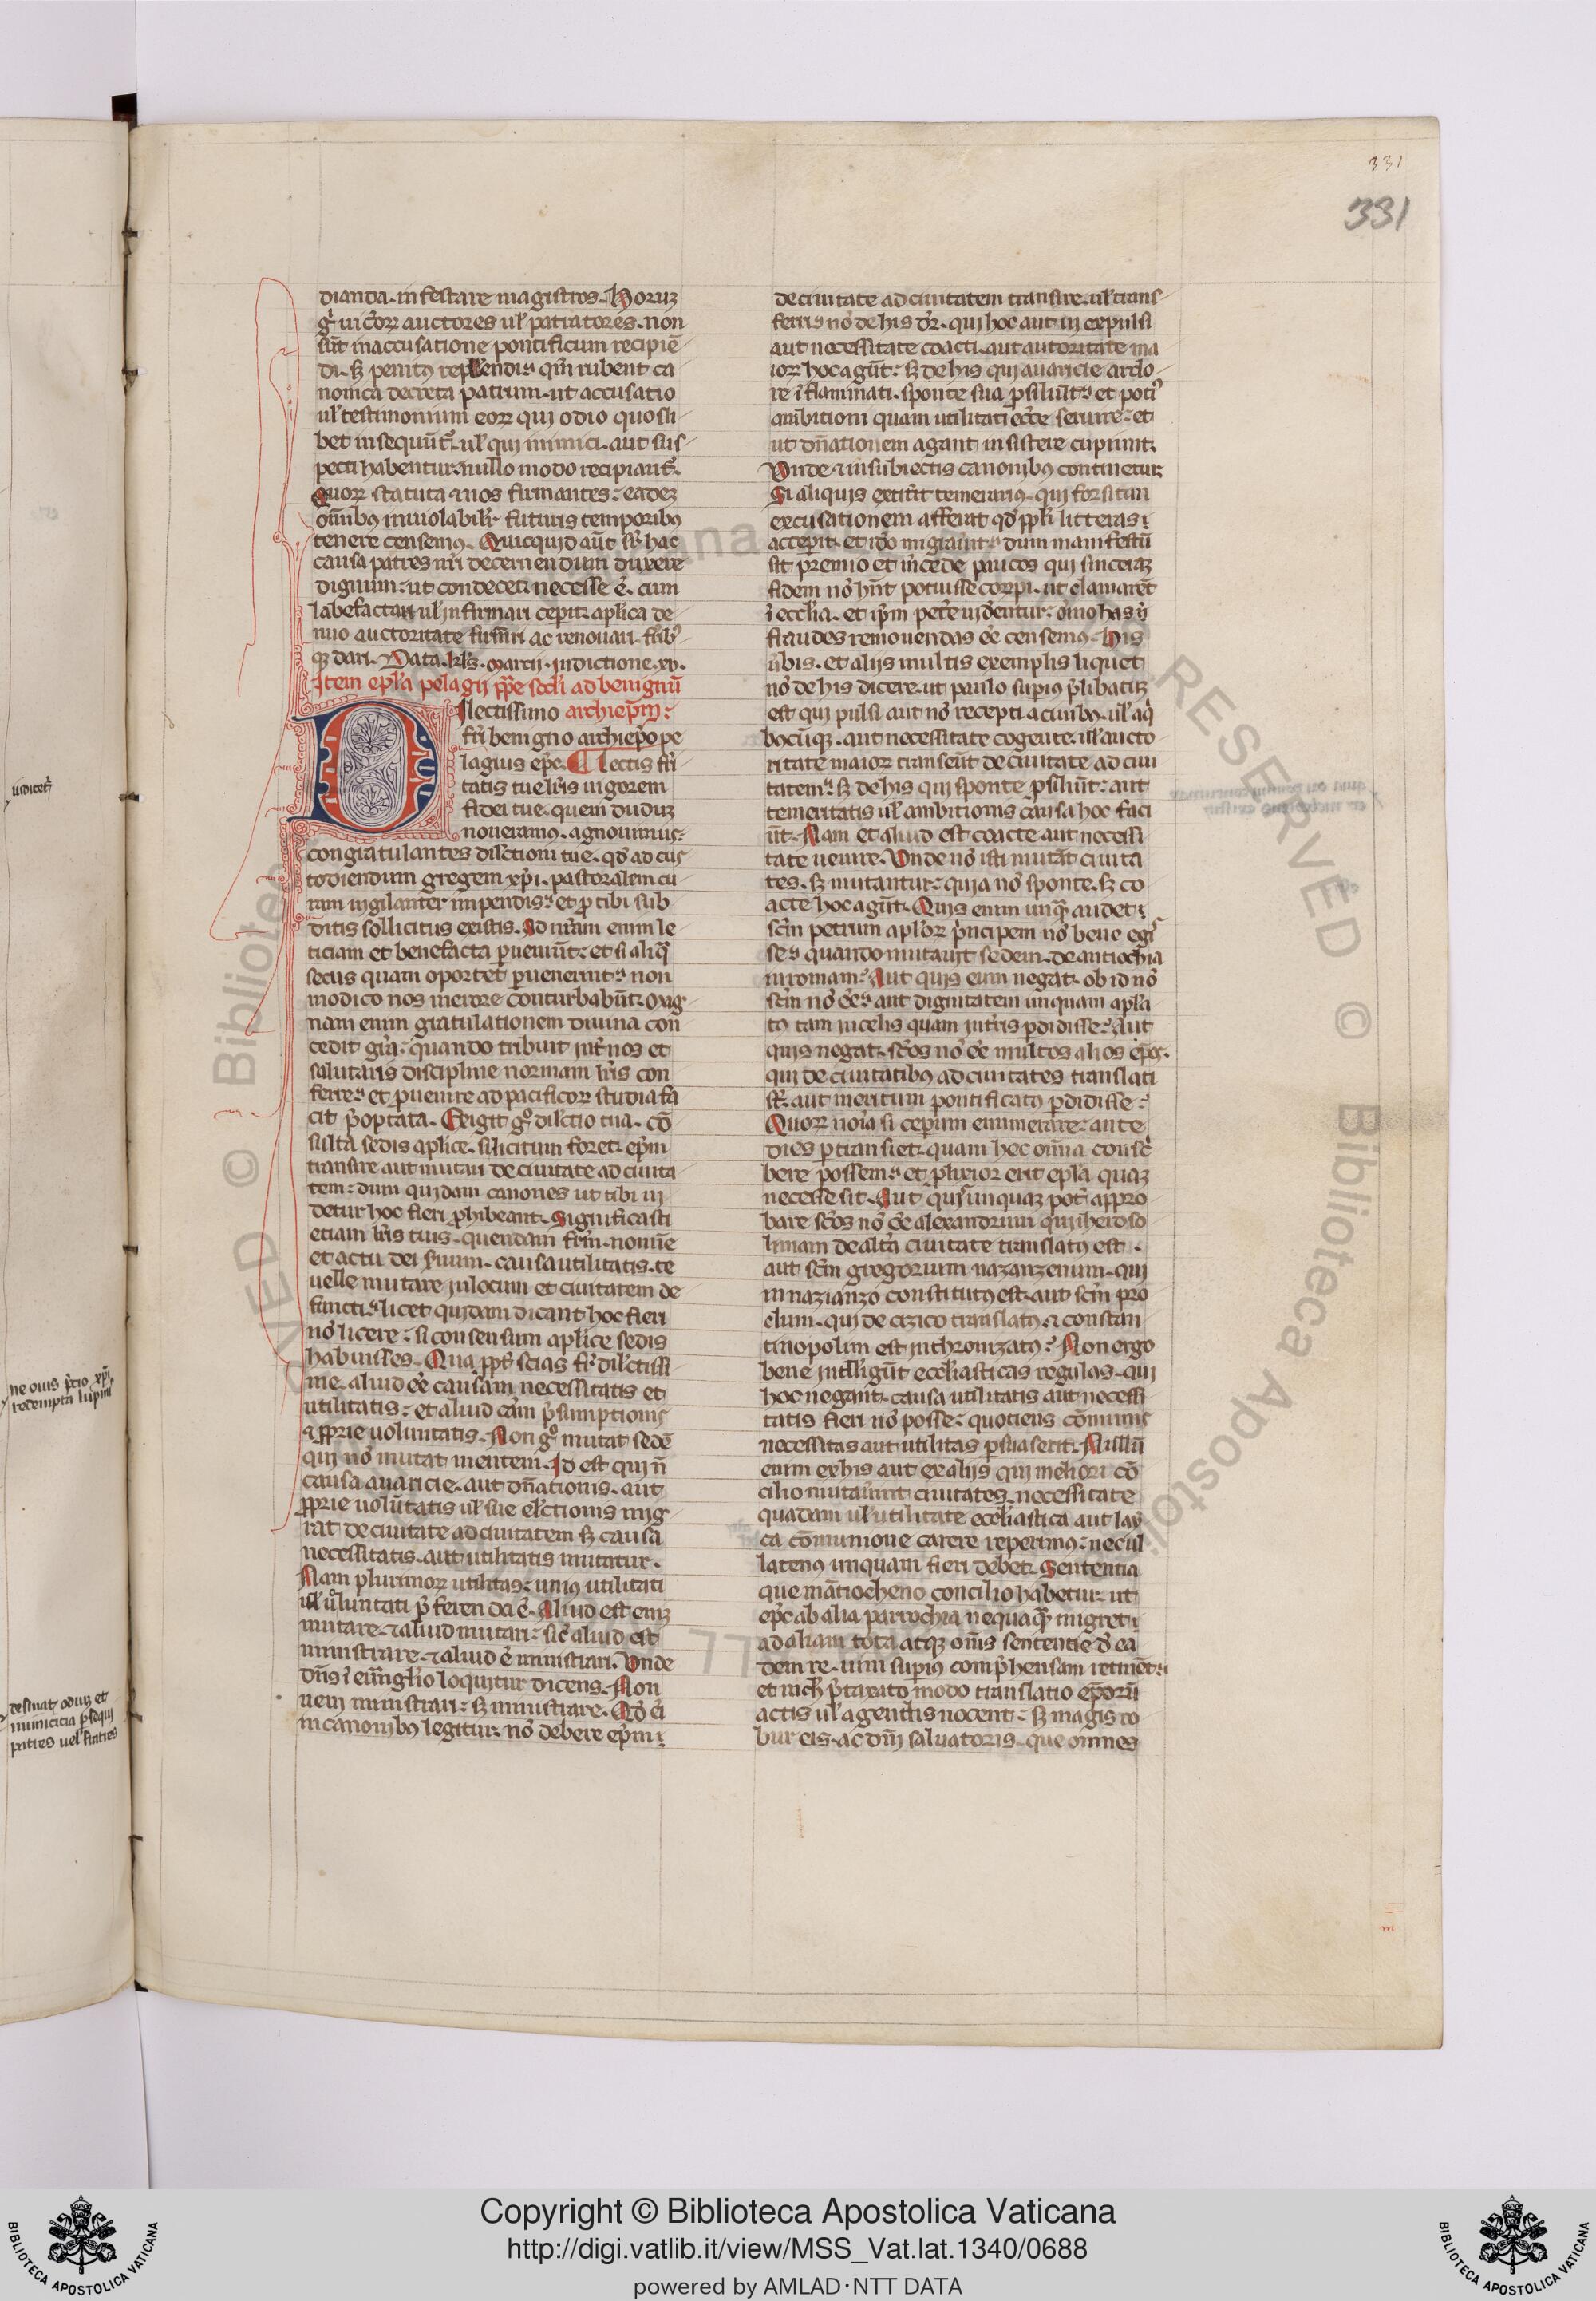 331
331
dianda. infestare magistros. Horuꝫ
g̾ uicioꝝ auctores ul̾ patratores. non
su̅t in accusatione pontificum recipie̅
nonica decreta patrum. ut accusatio
ul̾ testimonium eoꝝ qui odio quosli
bet insequu̅t̾. ul̾ qui inimici. aut sus
pecti habentur. nullo modo recipiant̾.
Quoꝝ statuta ⁊ nos firmantes: eadeꝫ
om̅ibꝰ inuiolabilr̾ futuris temporibꝰ
tenere censemꝰ. Quicquid aut̅ sr̾ hac
causa patres nr̅i decernendum duxere
dignum: ut condecet. necesse e̅. cum
labefactari ul̾ infirmari ceperit aplica de
nuo auctoritate firmari ac renouari. fr̅ibꝰ
qꝫ dari. Data. kls̅. marcij. indictione. xv.
Item epl̅a pelagij pp̅e scd̅i ad benignu̅
archiep̅m:
Dilectissimo
fr̅i benigno archiep̅o pe
lagius ep̅c. Lectis fr̅
tatis tue lr̅is uigorem
fidei tue. quem duduꝫ
noueramꝰ. agnouimus:
congratulantes dil̾ctioni tue. qd̾ ad cus
todiendum gregem xp̅i. pastoralem cu
ram uigilanter impendis. et p̱ tibi sub
ditis sollicitus existis. Ad nr̅am enim le
ticiam et benefacta ꝑueniu̅t: et si aliq̅
secus quam oportet ꝑuenerint. non
modico nos merore conturbabu̅t. mag
nam enim gratulationem diuina con
cedit gr̅a: quando tribuit int̾ nos et
salutaris discipline normam lr̅is con
ferre. et ꝑuenire ad pacificoꝝ studia fa
cit p̾optata. Exigit g̾ dil̾ctio tua. co̅
sulta sedis aplice. si licitum foret. ep̅m
transire aut mutari de ciuitate ad ciuita
tem: dum quidam canones ut tibi ui
detur hoc fieri ꝓhibeant. Significasti
etiam lr̅is tuis. quendam fr̅m. nomi̅e
et actu dei s̾uum. causa utilitatis. te
uelle mutare in locum et ciuitatem de
functi. licet quidam dicant hoc fieri
no̅ licere: si consensum aplice sedis
habuisses. Qua ꝓpt̾ scias fr̅ dil̾ctissi
me. aliud e̅e causam necessitatis et
utilitatis: et aliud cam̅ p̾sumptionis
⁊ ꝓprie uoluntatis. Non g̾ mutat sede̅
qui no̅ mutat mentem. Id est qui n̅
causa auaricie. aut dn̅ationis. aut
ꝓprie uolu̅tatis ul̾ sue el̾ctionis mig
rat de ciuitate ad ciuitatem sꝫ causa
necessitatis. aut utilitatis mutatur.
Nam plurimoꝝ utilitas: unius utilitati
ul̾ uoluntati p̾ferenda e̅. Aliud est eniꝫ
mutare. ⁊ aliud mutari: sic̾ aliud est
ministrare. ⁊ aliud e̅ ministrari. Unde
dn̅s i̅ eu̅ngl̅io loquitur dicens. Non
ueni ministrari: sꝫ ministrare. Qd̾ e̅i
in canonibꝰ legitur. no̅ debere ep̅m
de ciuitate ad ciuitatem transire. ul̾ trans
ferri. no̅ de his dr̅. qui hoc aut ui expulsi
aut necessitate coacti. aut autoritate ma
ioꝝ hoc agu̅t: sꝫ de his qui auaricie ardo
re i̅flammati. sponte sua ꝓsiliu̅t. et potiꝰ
ambitioni quam utilitati ecc̅e seruire. et
ut dn̅ationem agant insistere cupiunt.
Unde ⁊ in subiectis canonibꝰ continetur.
Si aliquis extit̾it temerariꝰ. qui forsitan
excusationem afferat qd̾ ppl̅i litteras
acceperit. et ido̅ migrauit. dum manifestu̅
sit premio et m̾cede paucos qui sinceraꝫ
fidem no̅ hn̅t potuisse corrpi. ut clamare̅t
i̅ eccl̅ia. et ip̅m pet̾e uidentur. om̅no has
fraudes remouendas e̅e censemꝰ. His
u̾bis. et alijs multis exemplis liquet
no̅ de his dicere. ut paulo sup̾ius p̾libatuꝫ
est qui pulsi aut no̅ recepti a ciuibꝰ. ul̾ a q̾
bꝰcu̅qꝫ. aut necessitate cogente. ul̾ aucto
ritate maioꝝ transeu̅t de ciuitate ad ciui
tatem. sꝫ de his qui sponte ꝓsiliu̅t: aut
temeritatis ul̾ ambitionis causa hoc faci
u̅t. Nam et aliud est coacte aut necessi
tate uenire. Unde no̅ isti muta̅t ciuita
tes. sꝫ mutantur: quia no̅ sponte. sꝫ co
acte hoc agu̅t. Quis enim unq̅ audet
sc̅m petrum apl̅oꝝ p̾ncipem no̅ bene egis
se. quando mutauit sedem. de antiochia
in romam? Aut quis eum negat. ob id no̅
sc̅m no̅ e̅e. aut dignitatem unquam apl̅a
tꝰ tam in celis quam in t̾ris ꝑdidisse? Aut
quis negat. sc̅os no̅ e̅e multos alios ep̅os.
qui de ciuitatibꝰ ad ciuitates translati
st̅. aut meritum pontificatꝰ ꝑdidisse?
Quoꝝ noi̅a si ceperim enumerare: ante
dies ꝑtransiet. quam hec om̅ia consc̾
bere possem. et ꝓlixior erit epl̅a quaꝫ
necesse sit. Aut quis unquaꝫ pot̾ appro
bare sc̅os no̅ e̅e alexandrum qui iheroso
limam de alt̾a ciuitate translatꝰ est.
aut sc̅m gregorium nazanzenum. qui
in nazianzo constitutꝰ est. aut sc̅m pro
clum. qui de cizico translatꝰ. ⁊ constan
tinopolim est inthronizatꝰ? Non ergo
bene intelligu̅t eccl̅iasticas regulas. qui
hoc negant. causa utilitatis aut necessi
tatis fieri no̅ posse: quotiens co̅munis
necessitas aut utilitas ꝑsuaserit. Nullu̅
enim ex his aut ex alijs qui meliori co̅
cilio mutauerunt ciuitates. necessitate
quadam ul̾ utilitate eccl̅iastica aut lay
ca co̅munione carere reperimꝰ: nec ul
latenꝰ unquam fieri debet. Sententia
que in a̅tiocheno concilio habetur. ut
ep̅c ab alia parrochia nequaq̅ migret
ad aliam tota atqꝫ om̅is sententie d̾ ea
dem re. uim sup̾ius comp̾hensam retinet.
et nich̾ p̾taxato modo translatio ep̅oru̅
actis ul̾ agendis nocent: sꝫ magis ro
bur eis. ac dn̅i saluatoris. que omnes
iudicet̾
ne ouis p̾tio xp̅i
redempta lupini
desinat odium et
inimicicia ꝑsequi
patres uel fratres
Copyright © Biblioteca Apostolica Vaticana
http://digi.vatlib.it/view/MSS_Vat.lat.1340/0688
powered by AMLAD·NTT DATA
BIBLIOTECA APOSTOLICA VATICANA
BIBLIOTECA APOSTOLICA VATICANA